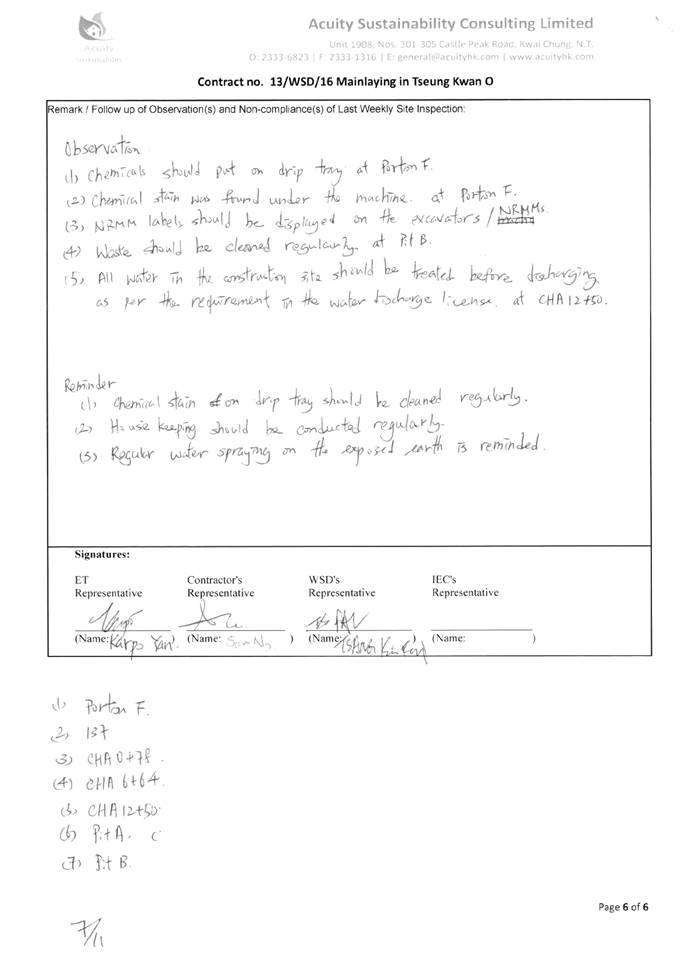 Acuity
Sustainability
Acuity Sustainability Consulting Limited
Unit 1908, Nos. 301-305 Castle Peak Road, Kwai Chung, N.T.
O: 2333-6823 | F: 2333-1316 | E: general@acuityhk.com | www.acuityhk.com
Contract no. 13/WSD/16 Mainlaying in Tseung Kwan O
Remark / Follow up of Observation(s) and Non-compliance(s) of Last Weekly Site Inspection:
Observation
(1) Chemicals should put on drip tray at Portion F.
(2) Chemical stain was found under the machine. at Portion F.
(3) NRMM labels should be displayed on the excavators / NRMMs.
(4) Waste should be cleaned regularly. at Pit B.
(5) All water in the construction site should be treated before discharging
as per the requirement in the water discharge license. at CHA 12+50.
Reminder
(1) Chemical stain on drip tray should be cleaned regularly.
(2) House keeping should be conducted regularly.
(3) Regular water spraying on the exposed earth is reminded.
Signatures:
ET Representative
Contractor's Representative
WSD's Representative
IEC's Representative
(Name: Karpo Yan)
(Name: Sam Ng )
(Name: )
(Name: )
(1) Portion F.
(2) 137
(3) CHA 0+78.
(4) CHA 6+64.
(5) CHA 12+50.
(6) Pit A.
(7) Pit B.
Page 6 of 6
7/11